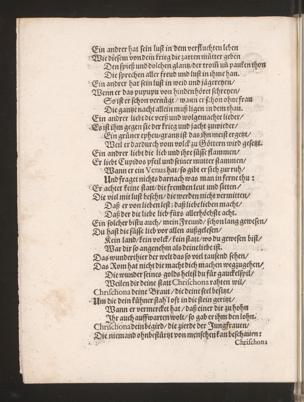 Ein andrer hat sein lust in dem verfluchten leben
Wie diesem von dem krieg die zarten mütter geben
Den spieß und dolchen glantz/ der tromm uñ paucken thon
Die sprechen aller freud und lust in ihme han.
Ein andrer hat sein lust in weid und jägereyen/
Wenn er das pupupu von hinden höret schreyen/
So ist er schon vernügt/ wann er schon ohne frau
Die gantze nacht allein muß ligen in dem thau.
Ein andrer liebt die verß und wolgemachte lieder/
Es ist ihm gegen sie der krieg und jacht zuwider/
Ein grüner epheu-grantz ist das ihn meist ergetzt/
Weil er dardurch vom volck zu Göttern wird gesetzt.
Ein andrer liebt die lieb und ihre süsse flammen/
Er liebt Cupidos pfeil und seiner mutter flammen/
Wann er ein Venus hat/ so gibt er sich zur ruh/
Und fraget nichts darnach was man in ferne thu:
Er achtet seine statt/ die fremden leut und sitten/
Die viel mit lust besehn/ die werden nicht vermitten/
Daß er von lieben lest; daß liebe lieben macht/
Daß der die liebe lieb fürs allerhöchste acht.
Ein solcher bistu auch/ mein Freund/ schon lang gewesen/
Du hast die süsse lieb vor allen außgelesen/
Kein land/ kein volck/ kein statt/ wo du gewesen bist/
War dir so angenehm als deine liebe ist.
Das wunderthier der welt das so viel tausend sehen/
Das Rom hat nicht die macht dich machen wegzugehen/
Die wunder seines golds helt du für gauckelspiel/
Weilen dir deine statt Chrischona rahten wil/
Chrischona deine Braut/ die deine seel besitzt/
Um die dein kühner stahl offt in die stein geritzt/
Wann er vermercket hat/ daß einer dir zu hohn
Ihr auch auffwarten wolt/ so gab er ihm den lohn.
Chrischona dein begird/ die zierde der Jungfrauen/
Die niemand ohnbestürtzt von menschen kan beschauen:
Chrischona